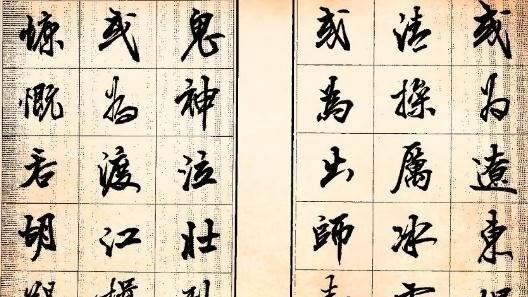 或為遼東
清操厲冰
或為出師
鬼神泣壯
或為渡江
慷慨吞胡